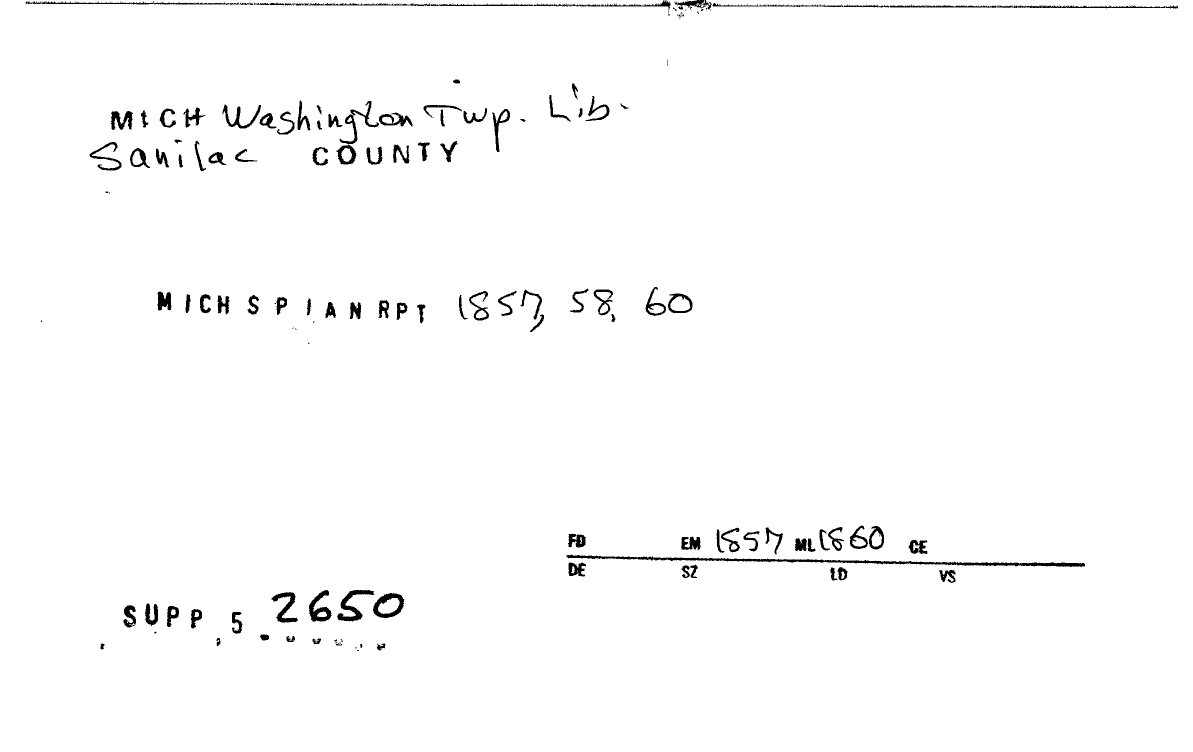 MICH Washington Twp. Lib.
Sanilac COUNTY
MICH S P I A N RPT 1857, 58, 60
FD EM 1857 ML 1860 CE
DE SZ LD VS
SUPP 5 2650